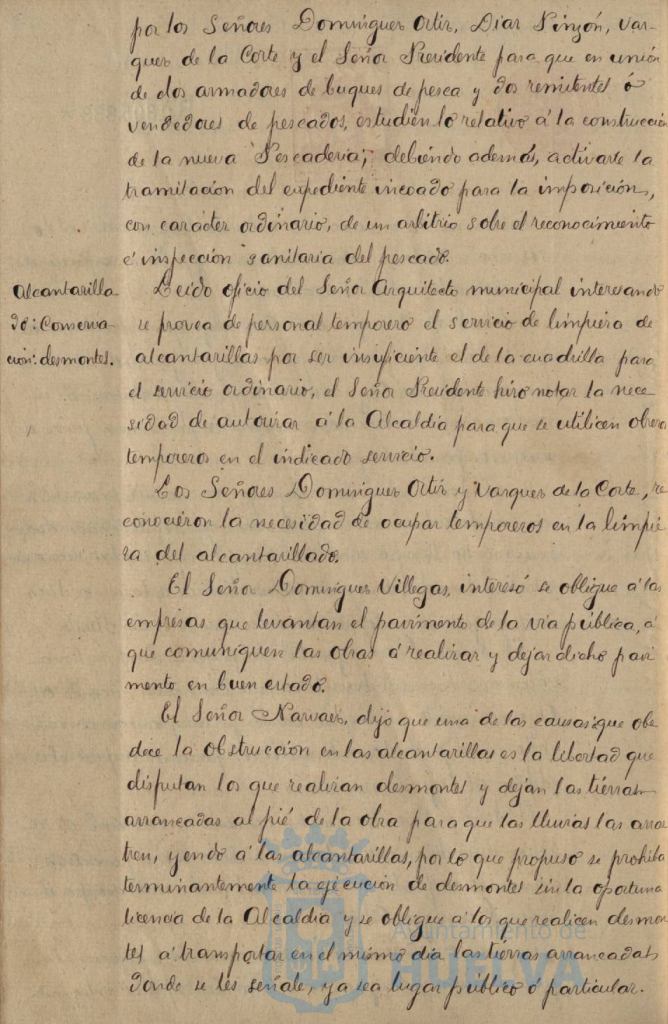 por los Señores Dominguez Ortiz, Diaz Pinzón, Vaz-
quez de la Corte y el Señor Presidente para que en unión
de dos armadores de buques de pesca y dos remitentes ó
vendedores de pescados, estudien lo relativo á la construcción
de la nueva Pescaderia; debiendo además, activarse la
tramitación del expediente incoado para la imposición,
con carácter ordinario, de un arbitrio sobre el reconocimiento
é inspección sanitaria del pescado.
Alcantarilla-
do: Conserva-
ción: desmontes.
Leido oficio del Señor Arquitecto municipal interesando
se provea de personal temporero el servicio de limpieza de
alcantarillas por ser insuficiente el de la cuadrilla para
el servicio ordinario, el Señor Presidente hizo notar la nece-
sidad de autorizar á la Alcaldía para que se utilicen obreros
temporeros en el indicado servicio.
Los Señores Dominguez Ortiz y Vazquez de la Corte, re-
conocieron la necesidad de ocupar temporeros en la limpie-
za del alcantarillado.
El Señor Dominguez Villegas, interesó se obligue á las
empresas que levantan el pavimento de la via pública, á
que comuniquen las obras á realizar y dejar dicho pavi-
mento en buen estado.
El Señor Narvaez, dijo que una de las causas que obe-
dece la obstrucción en las alcantarillas es la libertad que
disfrutan los que realizan desmontes y dejan las tierras
arrancadas al pié de la obra para que las lluvias las arras-
tren, yendo á las alcantarillas, por lo que propuso se prohiba
terminantemente la ejecución de desmontes sin la oportuna
licencia de la Alcaldía y se obligue á los que realicen desmon-
tes á transportar en el mismo dia las tierras arrancadas
donde se les señale, ya sea lugar público ó particular.
Ayuntamiento de
HUELVA